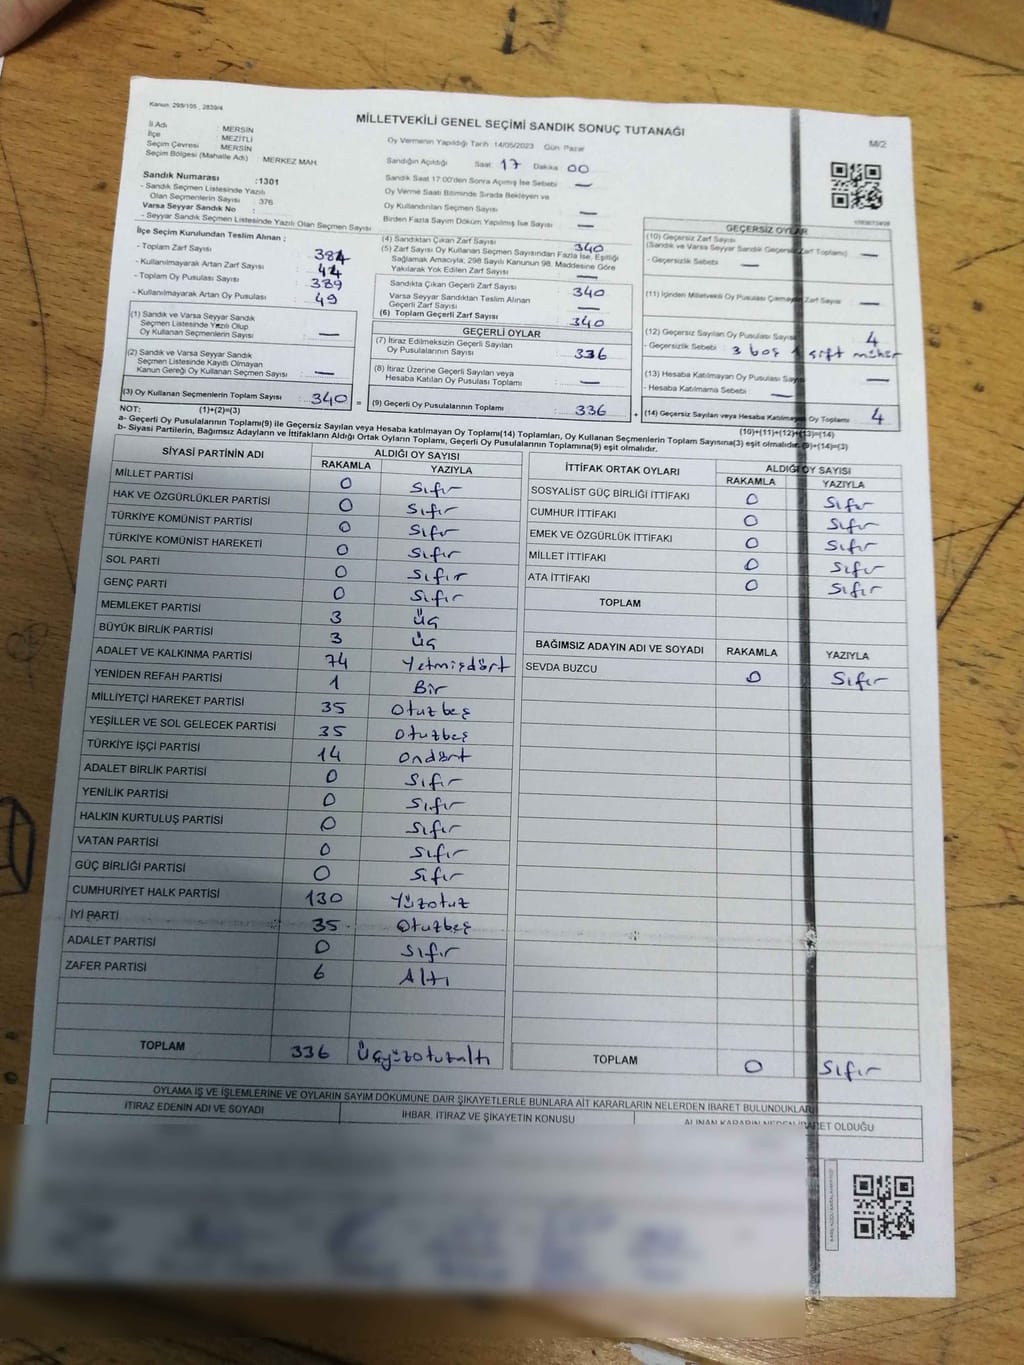 Kanun: 298/105, 2839/4
MİLLETVEKİLİ GENEL SEÇİMİ SANDIK SONUÇ TUTANAĞI
M/2
İl Adı : MERSİN
İlçe : MEZİTLİ
Seçim Çevresi : MERSİN
Seçim Bölgesi (Mahalle Adı) MERKEZ MAH.
Sandık Numarası :1301
- Sandık Seçmen Listesinde Yazılı
Olan Seçmenlerin Sayısı : 376
Varsa Seyyar Sandık No :
- Seyyar Sandık Seçmen Listesinde Yazılı Olan Seçmen Sayısı
Oy Vermenin Yapıldığı Tarih :14/05/2023 Gün: Pazar
Sandığın Açıldığı Saat 17 Dakika 00
Sandık Saat 17:00'den Sonra Açılmış İse Sebebi : —
Oy Verme Saati Bitiminde Sırada Bekleyen ve
Oy Kullandırılan Seçmen Sayısı : —
Birden Fazla Sayım Döküm Yapılmış İse Sayısı : —
İlçe Seçim Kurulundan Teslim Alınan ;
- Toplam Zarf Sayısı : 384
- Kullanılmayarak Artan Zarf Sayısı : 44
- Toplam Oy Pusulası Sayısı : 389
- Kullanılmayarak Artan Oy Pusulası : 49
(1) Sandık ve Varsa Seyyar Sandık
Seçmen Listesinde Yazılı Olup
Oy Kullanan Seçmenlerin Sayısı : —
(2) Sandık ve Varsa Seyyar Sandık
Seçmen Listesinde Kayıtlı Olmayan
Kanun Gereği Oy Kullanan Seçmen Sayısı : —
(3) Oy Kullanan Seçmenlerin Toplam Sayısı : 340
(4) Sandıktan Çıkan Zarf Sayısı : 340
(5) Zarf Sayısı Oy Kullanan Seçmen Sayısından Fazla İse, Eşitliği
Sağlamak Amacıyla, 298 Sayılı Kanunun 98. Maddesine Göre
Yakılarak Yok Edilen Zarf Sayısı : —
Sandıkta Çıkan Geçerli Zarf Sayısı : 340
Varsa Seyyar Sandıktan Teslim Alınan
Geçerli Zarf Sayısı : —
(6) Toplam Geçerli Zarf Sayısı : 340
GEÇERLİ OYLAR
(7) İtiraz Edilmeksizin Geçerli Sayılan
Oy Pusulalarının Sayısı : 336
(8) İtiraz Üzerine Geçerli Sayılan veya
Hesaba Katılan Oy Pusulası Toplamı : —
= (9) Geçerli Oy Pusulalarının Toplamı : 336
GEÇERSİZ OYLAR
(10) Geçersiz Zarf Sayısı
(Sandık ve Varsa Seyyar Sandık Geçersiz Zarf Toplamı) : —
- Geçersizlik Sebebi : —
(11) İçinden Milletvekili Oy Pusulası Çıkmayan Zarf Sayısı : —
(12) Geçersiz Sayılan Oy Pusulası Sayısı : 4
- Geçersizlik Sebebi : 3 boş 1 çift mühür
(13) Hesaba Katılmayan Oy Pusulası Sayısı : —
- Hesaba Katılmama Sebebi : —
+ (14) Geçersiz Sayılan veya Hesaba Katılmayan Oy Toplamı : 4
NOT: (1)+(2)=(3)
(10)+(11)+(12)+(13)=(14)
a- Geçerli Oy Pusulaları Toplamı(9) ile Geçersiz Sayılan veya Hesaba katılmayan Oy Toplamı(14) Toplamları, Oy Kullanan Seçmenlerin Toplam Sayısına(3) eşit olmalıdır. (9)+(14)=(3)
b- Siyasi Partilerin, Bağımsız Adayların ve İttifakların Aldığı Ortak Oyların Toplamı, Geçerli Oy Pusulalarının Toplamına(9) eşit olmalıdır.
SİYASİ PARTİNİN ADI ALDIĞI OY SAYISI
RAKAMLA YAZIYLA
MİLLET PARTİSİ 0 Sıfır
HAK VE ÖZGÜRLÜKLER PARTİSİ 0 Sıfır
TÜRKİYE KOMÜNİST PARTİSİ 0 Sıfır
TÜRKİYE KOMÜNİST HAREKETİ 0 Sıfır
SOL PARTİ 0 Sıfır
GENÇ PARTİ 0 Sıfır
MEMLEKET PARTİSİ 3 Üç
BÜYÜK BİRLİK PARTİSİ 3 Üç
ADALET VE KALKINMA PARTİSİ 74 Yetmişdört
YENİDEN REFAH PARTİSİ 1 Bir
MİLLİYETÇİ HAREKET PARTİSİ 35 Otuzbeş
YEŞİLLER VE SOL GELECEK PARTİSİ 35 Otuzbeş
TÜRKİYE İŞÇİ PARTİSİ 14 Ondört
ADALET BİRLİK PARTİSİ 0 Sıfır
YENİLİK PARTİSİ 0 Sıfır
HALKIN KURTULUŞ PARTİSİ 0 Sıfır
VATAN PARTİSİ 0 Sıfır
GÜÇ BİRLİĞİ PARTİSİ 0 Sıfır
CUMHURİYET HALK PARTİSİ 130 Yüzotuz
İYİ PARTİ 35 Otuzbeş
ADALET PARTİSİ 0 Sıfır
ZAFER PARTİSİ 6 Altı
TOPLAM 336 Üçyüzotuzaltı
İTTİFAK ORTAK OYLARI ALDIĞI OY SAYISI
RAKAMLA YAZIYLA
SOSYALİST GÜÇ BİRLİĞİ İTTİFAKI 0 Sıfır
CUMHUR İTTİFAKI 0 Sıfır
EMEK VE ÖZGÜRLÜK İTTİFAKI 0 Sıfır
MİLLET İTTİFAKI 0 Sıfır
ATA İTTİFAKI 0 Sıfır
TOPLAM
BAĞIMSIZ ADAYIN ADI VE SOYADI RAKAMLA YAZIYLA
SEVDA BUZCU 0 Sıfır
TOPLAM 0 Sıfır
OYLAMA İŞ VE İŞLEMLERİNE VE OYLARIN SAYIM DÖKÜMÜNE DAİR ŞİKAYETLERLE BUNLARA AİT KARARLARIN NELERDEN İBARET BULUNDUKLARI
İTİRAZ EDENİN ADI VE SOYADI İHBAR, İTİRAZ VE ŞİKAYETİN KONUSU ALINAN KARARIN NEDEN İBARET OLDUĞU